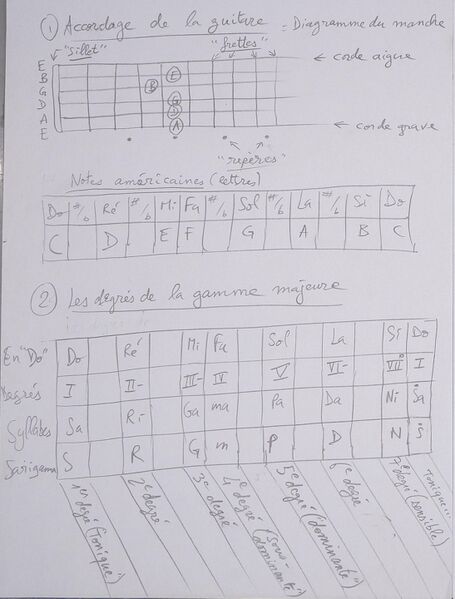 ① Accordage de la guitare = Diagramme du manche
"Sillet" "frettes"
E ← corde aigue
B E
G B
D G
A D
E A ← corde grave
"repères"
Notes américaines (lettres)
Do #/b Ré #/b Mi Fa #/b Sol #/b La #/b Si Do
C D E F G A B C
② Les degrés de la gamme majeure
En "Do" Do Ré Mi Fa Sol La Si Do
Degrés I II- III- IV V VI- VII° I
Syllabes Sa Ri Ga ma Pa Da Ni Ṡa
Sarigama S R G m P D N Ṡ
1er degré (Tonique)
2e degré
3e degré
4e degré (sous-dominante)
5e degré (dominante")
6e degré
7e degré (sensible)
Tonique...